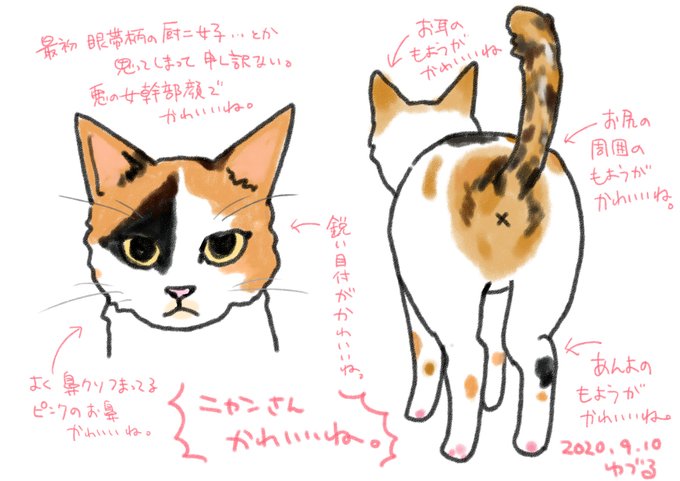 最初 眼帯柄の厨二女子…とか
思ってしまって申し訳ない。
悪の女幹部顔で
かわいいね。
お耳の
もようが
かわいいね
お尻の
周囲の
もようが
かわいいね。
鋭い目付がかわいいね。
よく鼻クソつまってる
ピンクのお鼻
かわいいね。
ニャンさん
かわいいいね。
あんよの
もようが
かわいいね。
2020.9.10
ゆづる